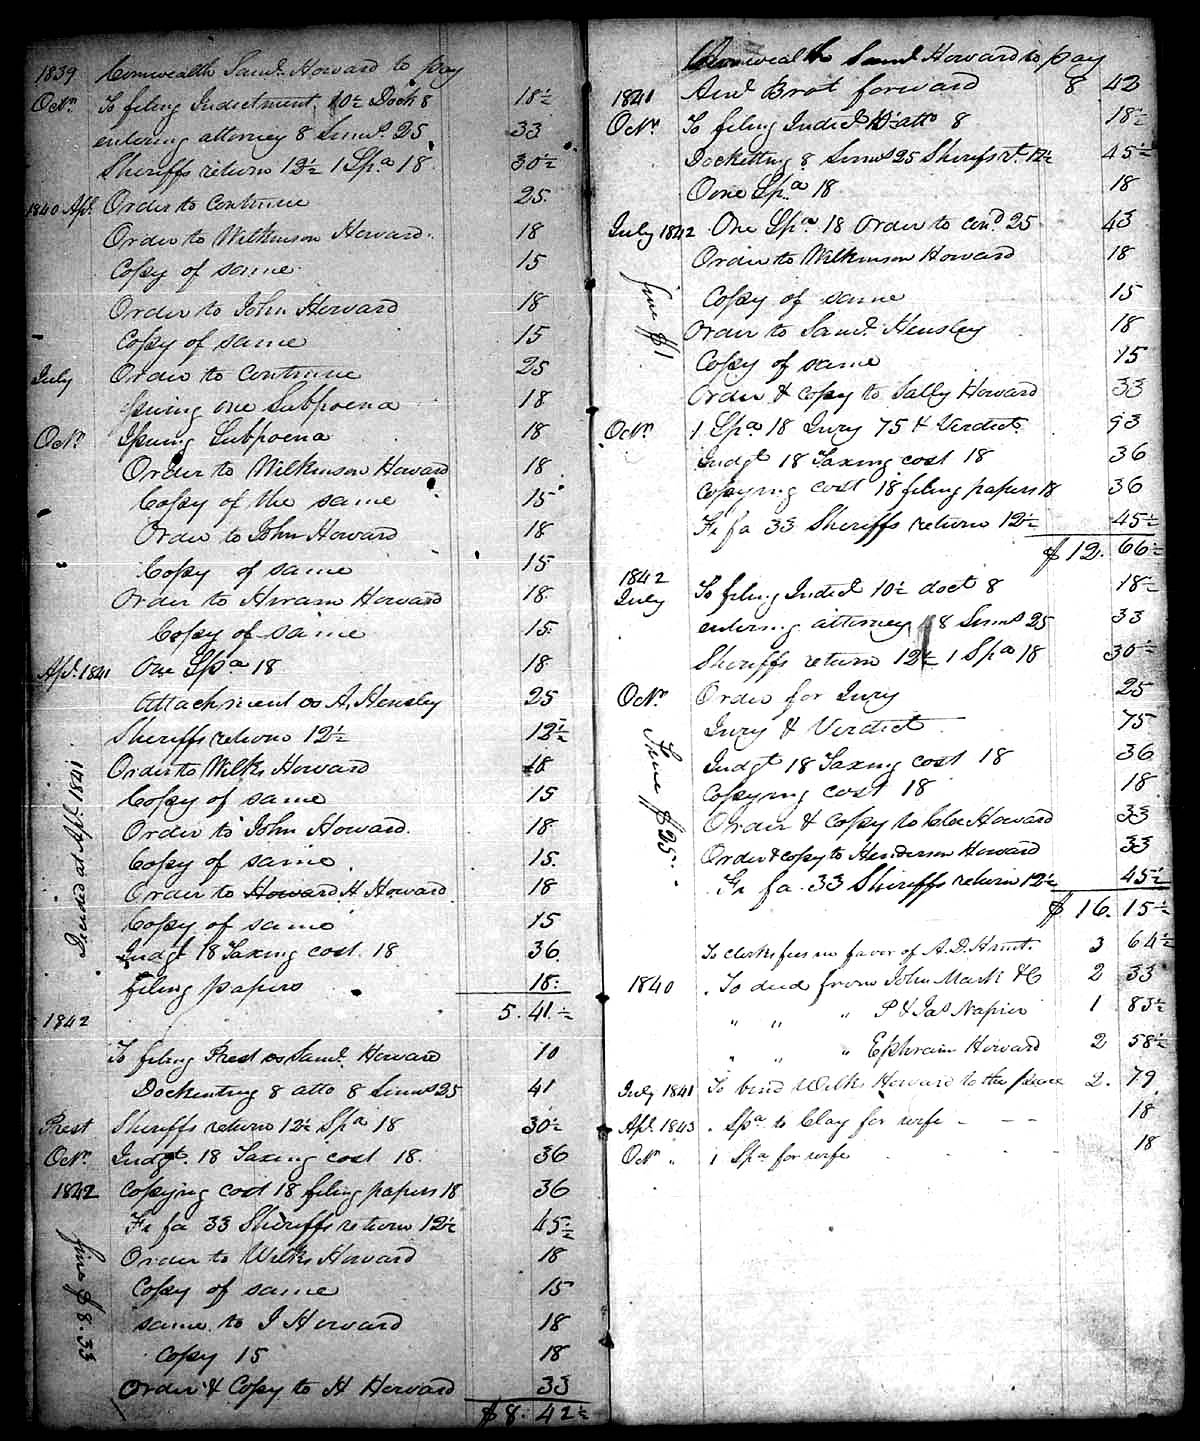 1839 Comwealth Saml. Howard to pay
Octr. To filing Indictment 10½ Dock 8 18½
entering attorney 8 Sums. 25 33
Sheriffs return 12½ 1 Spa 18 30½
1840 Apl. Order to Continue 25
Order to Wilkinson Howard 18
Copy of same 15
Order to John Howard 18
Copy of same 15
July Order to continue 25
Issuing one Subpoena 18
Octr. Issuing Subpoena 18
Order to Wilkinson Howard 18
Copy of the same 15
Order to John Howard 18
Copy of same 15
Order to Hiram Howard 18
Copy of same 15
Apl. 1841 One Spa 18 18
Attachment vs A. Hensley 25
Sheriffs return 12½ 12½
Order to Wilks Howard 18
Copy of same 15
Order to John Howard 18
Copy of same 15
Order to Howard H. Howard 18
Copy of same 15
Judgt 18 Taxing cost 18 36
filing papers 18
at Apl. 1841
5.41½
1842
To filing Prest vs Saml. Howard 10
Dockenting 8 atto 8 Sums 25 41
Prest Sheriffs return 12½ Spa 18 30½
Octr. Judgt. 18 Taxing cost 18 36
1842 Copying cost 18 filing papers 18 36
Fi fa 33 Sheriffs return 12½ 45½
Order to Wilks Howard 18
Copy of same 15
same to J Howard 18
Copy 15 18
Order & Copy to H Howard 33
fine $8.33
$8.42½
Comwealth Saml Howard to pay
1841 Amt Brot forward 8 42
Octr. To filing Indict 10½ atto 8 18½
Docketting 8 Sums 25 Sherifs rt. 12½ 45½
One Spa 18 18
July 1842 One Spa 18 Order to cond 25 43
Order to Wilkinson Howard 18
Copy of same 15
Order to Saml. Hensley 18
Copy of same 15
Order & copy to Sally Howard 33
fine $1
Octr. 1 Spa 18 Jury 75 & Verdict 93
Judgt 18 Taxing cost 18 36
Copying cost 18 filing papers 18 36
Fi fa 33 Sheriffs return 12½ 45½
$12.66½
1842
July To filing Indict 10½ doct 8 18½
entering attorney 8 Sums 25 33
Sheriffs return 12½ 1 Spa 18 30½
Octr. Order for Jury 25
Jury & Verdict 75
Judgt 18 Taxing cost 18 36
Copying cost 18 18
Order & Copy to Howard 33
Order & copy to Henderson Howard 33
Fi fa 33 Sheriffs return 12½ 45½
fine $25.
$16.15½
To clerks fees in favor of A.D. Hunt. 3 64½
1840 To deed from John Mark &C 2 33
" " " P & Jas Napier 1 83½
" " " Ephraim Howard 2 58½
July 1841 To bind Wilks Howard to the peace 2.79
Apl. 1843 Spa to Clay for wife - - - 18
Octr " 1 Spa for wife 18